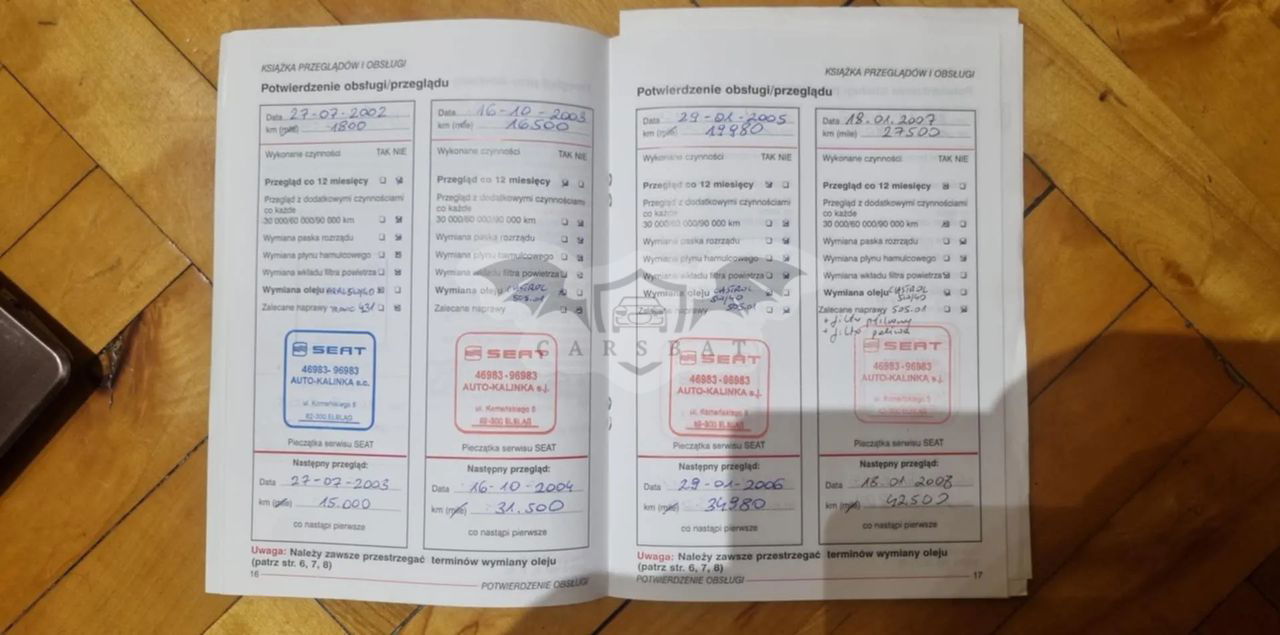 KSIĄŻKA PRZEGLĄDÓW I OBSŁUGI
Potwierdzenie obsługi/przeglądu
Data 27-07-2002
km (mile) 1800
Wykonane czynności TAK NIE
Przegląd co 12 miesięcy
Przegląd z dodatkowymi czynnościami
co każde
30 000/60 000/90 000 km
Wymiana paska rozrządu
Wymiana płynu hamulcowego
Wymiana wkładu filtra powietrza
Wymiana oleju 5W40
Zalecane naprawy
SEAT
46983-96983
AUTO-KALINKA s.c.
ul. Komeńskiego 5
82-300 ELBLĄG
Pieczątka serwisu SEAT
Następny przegląd:
Data 27-07-2003
km (mile) 15.000
co nastąpi pierwsze
Data 16-10-2003
km (mile) 16500
Wykonane czynności TAK NIE
Przegląd co 12 miesięcy
Przegląd z dodatkowymi czynnościami
co każde
30 000/60 000/90 000 km
Wymiana paska rozrządu
Wymiana płynu hamulcowego
Wymiana wkładu filtra powietrza
Wymiana oleju CASTROL
505.01
Zalecane naprawy
SEAT
46983-96983
AUTO-KALINKA s.j.
ul. Komeńskiego 5
82-300 ELBLĄG
Pieczątka serwisu SEAT
Następny przegląd:
Data 16-10-2004
km (mile) 31.500
co nastąpi pierwsze
Uwaga: Należy zawsze przestrzegać terminów wymiany oleju
(patrz str. 6, 7, 8)
16 POTWIERDZENIE OBSŁUGI
KSIĄŻKA PRZEGLĄDÓW I OBSŁUGI
Potwierdzenie obsługi/przeglądu
Data 29-01-2005
km (mile) 19980
Wykonane czynności TAK NIE
Przegląd co 12 miesięcy
Przegląd z dodatkowymi czynnościami
co każde
30 000/60 000/90 000 km
Wymiana paska rozrządu
Wymiana płynu hamulcowego
Wymiana wkładu filtra powietrza
Wymiana oleju CASTROL
5W40
Zalecane naprawy 505.01
SEAT
46983-96983
AUTO-KALINKA s.j.
ul. Komeńskiego 5
82-300 ELBLĄG
Pieczątka serwisu SEAT
Następny przegląd:
Data 29-01-2006
km (mile) 34980
co nastąpi pierwsze
Data 18.01.2007
km (mile) 27500
Wykonane czynności TAK NIE
Przegląd co 12 miesięcy
Przegląd z dodatkowymi czynnościami
co każde
30 000/60 000/90 000 km
Wymiana paska rozrządu
Wymiana płynu hamulcowego
Wymiana wkładu filtra powietrza
Wymiana oleju CASTROL
5W40
Zalecane naprawy 505.01
+ filtr pyłkowy
+ filtr paliwa
SEAT
46983-96983
AUTO-KALINKA s.j.
ul. Komeńskiego 5
82-300 ELBLĄG
Pieczątka serwisu SEAT
Następny przegląd:
Data 18.01 2008
km (mile) 42500
co nastąpi pierwsze
Uwaga: Należy zawsze przestrzegać terminów wymiany oleju
(patrz str. 6, 7, 8)
POTWIERDZENIE OBSŁUGI 17
CARSBAT